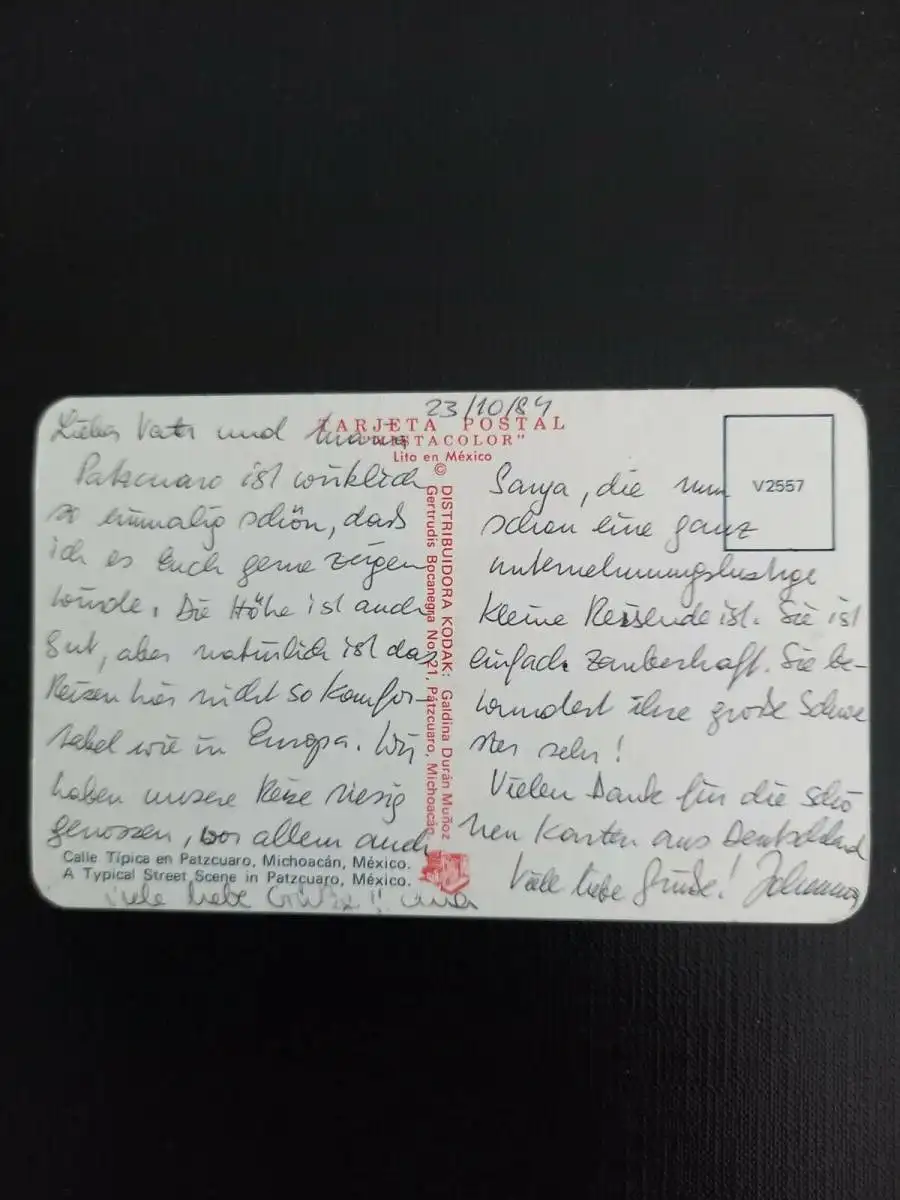 23/10/84
TARJETA POSTAL
"VISTACOLOR"
Lito en México
©
V2557
DISTRIBUIDORA KODAK: Galdina Durán Muñoz
Gertrudis Bocanegra No. 21, Pátzcuaro, Michoacán
Lieber Vater und Mama
Patzcuaro ist wirklich
so einmalig schön, daß
ich es Euch gerne zeigen
würde. Die Höhe ist auch
gut, aber natürlich ist das
Reisen hier nicht so komfor-
tabel wie in Europa. Wir
haben unsere Reise riesig
genossen, vor allem auch
Sanya, die nun
schon eine ganz
unternehmungslustige
kleine Reisende ist. Sie ist
einfach zauberhaft. Sie be-
wundert ihre große Schwe
ster sehr!
Vielen Dank für die schö
nen Karten aus Deutschland
Viele liebe Grüße! Johannes
Calle Típica en Patzcuaro, Michoacán, México.
A Typical Street Scene in Patzcuaro, México.
Viele liebe Grüße!!